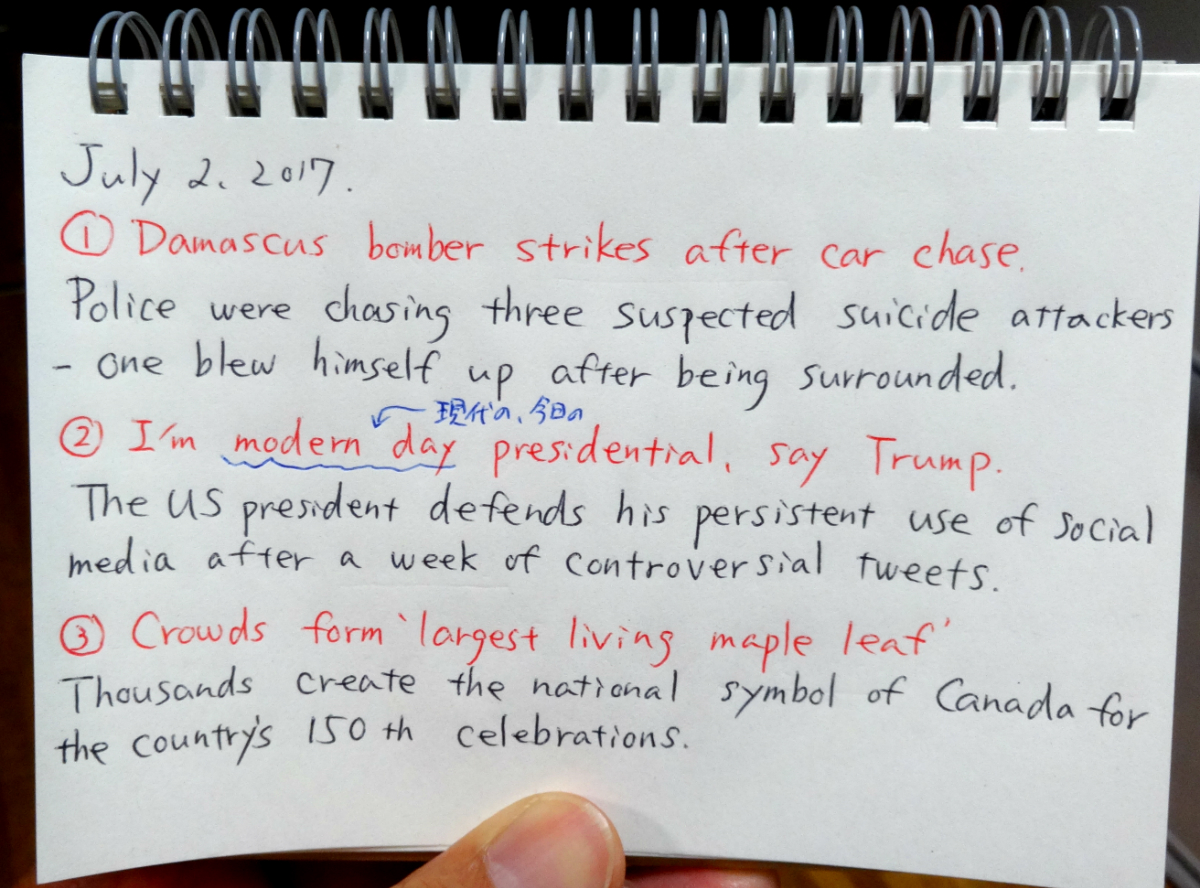 July 2. 2017.
① Damascus bomber strikes after car chase.
Police were chasing three suspected suicide attackers
- one blew himself up after being surrounded.
現代の、今日の
② I'm modern day presidential, say Trump.
The US president defends his persistent use of social
media after a week of controversial tweets.
③ Crowds form 'largest living maple leaf'
Thousands create the national symbol of Canada for
the country's 150th celebrations.